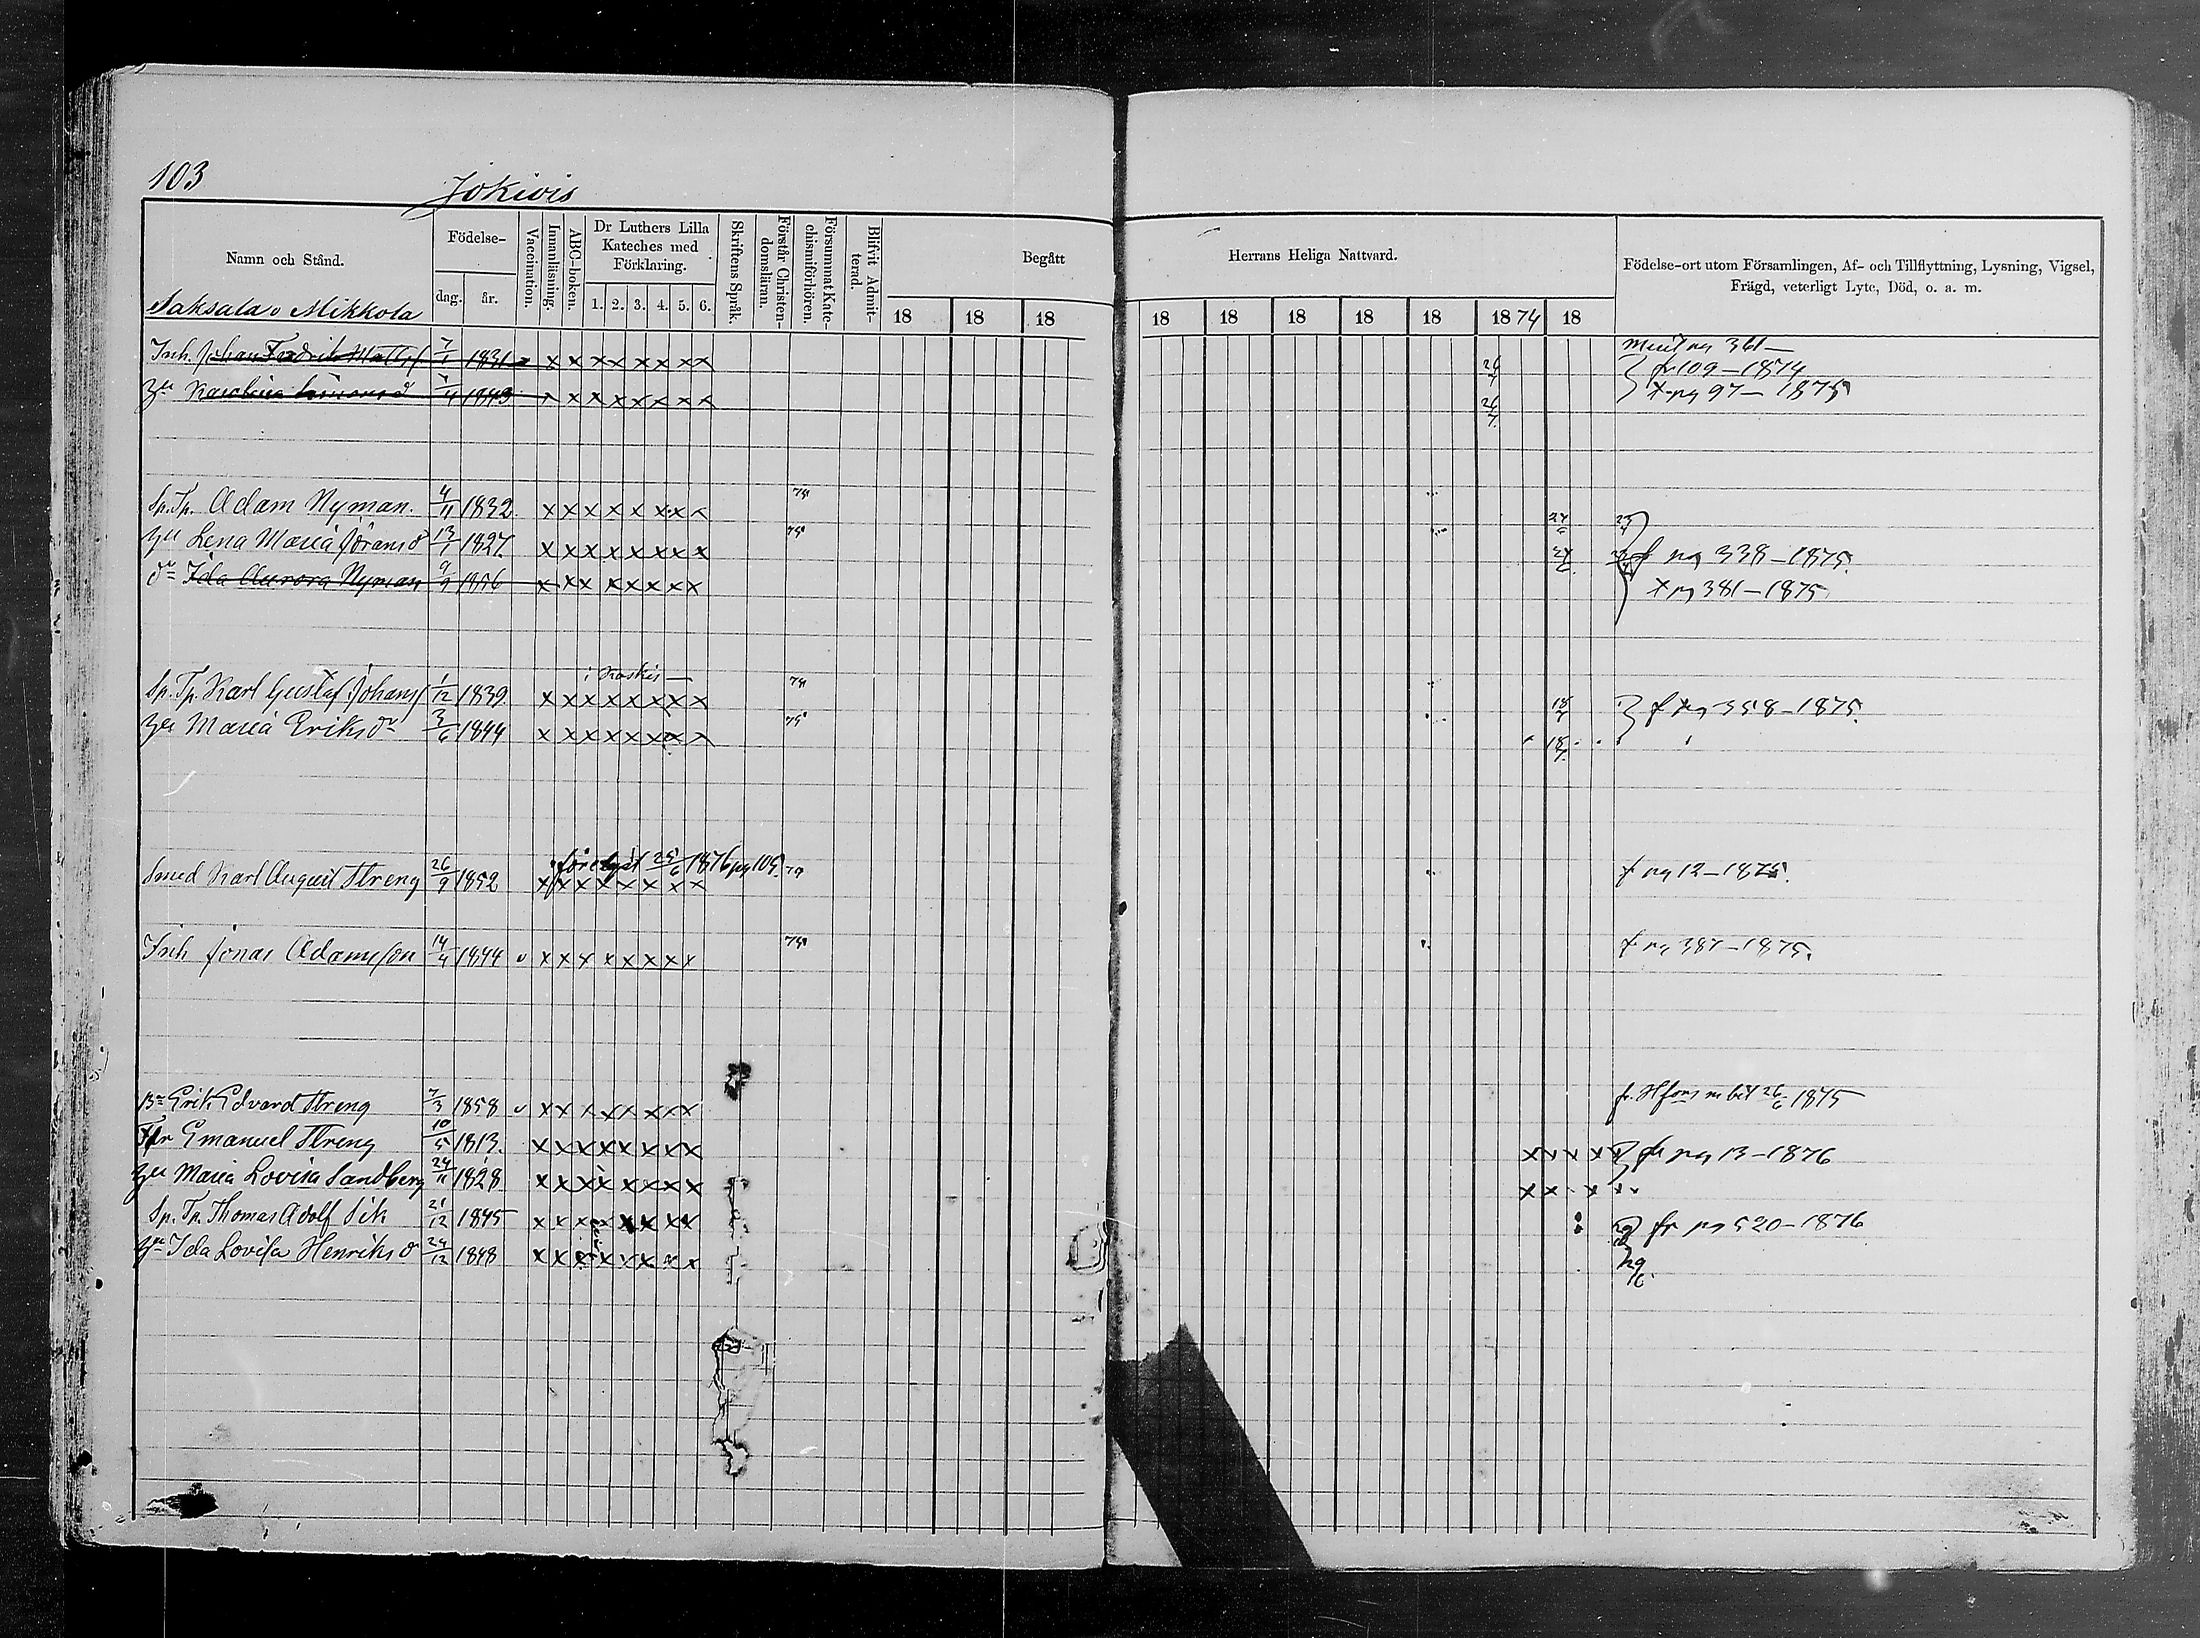 103
Jokivis
Namn och Stånd.
Födelse-
dag.
år.
Vaccination.
Innanläsning.
ABC-boken.
Dr Luthers Lilla
Kateches med
Förklaring.
1. 2. 3. 4. 5. 6.
Skriftens Språk.
Förstår Christen-
domsläran.
Försummat Kate-
chismiförhören.
Blifvit Admit-
terad.
Begått
Herrans Heliga Nattvard.
18 18 18 18 18 18 18 18 1874 18
Födelse-ort utom Församlingen, Af- och Tillflyttning, Lysning, Vigsel,
Frägd, veterligt Lyte, Död, o. a. m.
Saksala o Mikkola
Inh. Johan Fredrik 7/1 1831 x x x x x x x x 26/7 109-1874
Karolina 1843 x x x x x x x x 26/7 pg 97-1875
Sp. Tp. Adam Nyman. 4/11 1832. x x x x x x x x 75
Lena Maria Göransd 13/1 1827. x x x x x x x x 75 f pg 338-1875.
dr Ida Aurora Nyman 9/9 1856 x x x x x x x x pg 381-1875
Sp. Tp. Karl Gustaf Johans 1/12 1839. x x x x x x x x 75 18/7 f pg 358-1875.
Maria Eriksdr 3/6 1844 x x x x x x x x 75 18/7.
25/6 1876 pg 105.
Smed Karl August Streng 26/9 1852 x x x x x x x x f pg 12-1875.
Inh Jonas Adamsson 14/4 1844 v x x x x x x x x 75 f pg 387-1875.
Erik Edvard Streng 7/3 1858 v x x x x x x x x fr. Hfors m bet 26/6 1875
Emanuel Streng 10/5 1813. x x x x x x x x fr pg 13-1876
Maria Lovisa Sandberg 24/11 1828 x x x x x x x x
Sp. Tp. Thomas Adolf Sik 21/12 1845 x x x x x x x x fr pg 520-1876
Ida Lovisa Henriksd 24/12 1848 x x x x x x x x